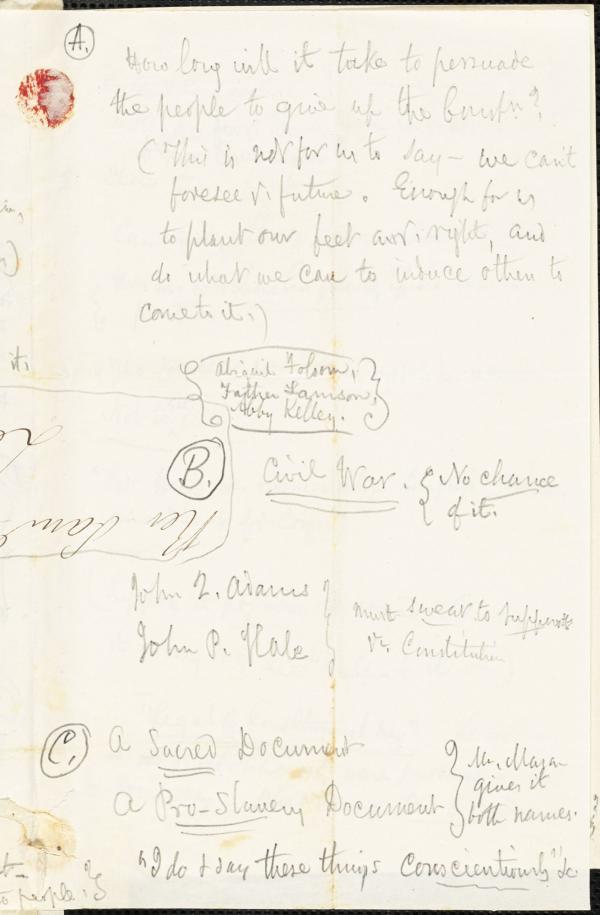 A.
How long will it take to persuade
the people to give up the Constn?
(This is not for us to say – we can't
foresee ye. future. Enough for us
to plant our feet and. right, and
do what we can to induce others to
come to it.)
it.
{ Abigail Folsom,
Father Lamson,
Abby Kelley. }
B.
Civil War. { No chance
of it.
John Q. Adams
John P. Hale
} must swear to support
ye. Constitution
C.
A Sacred Document
A Pro-Slavery Document
} Mr. May
gives it
both names.
"I do & say these things conscientiously" &c
to people.}